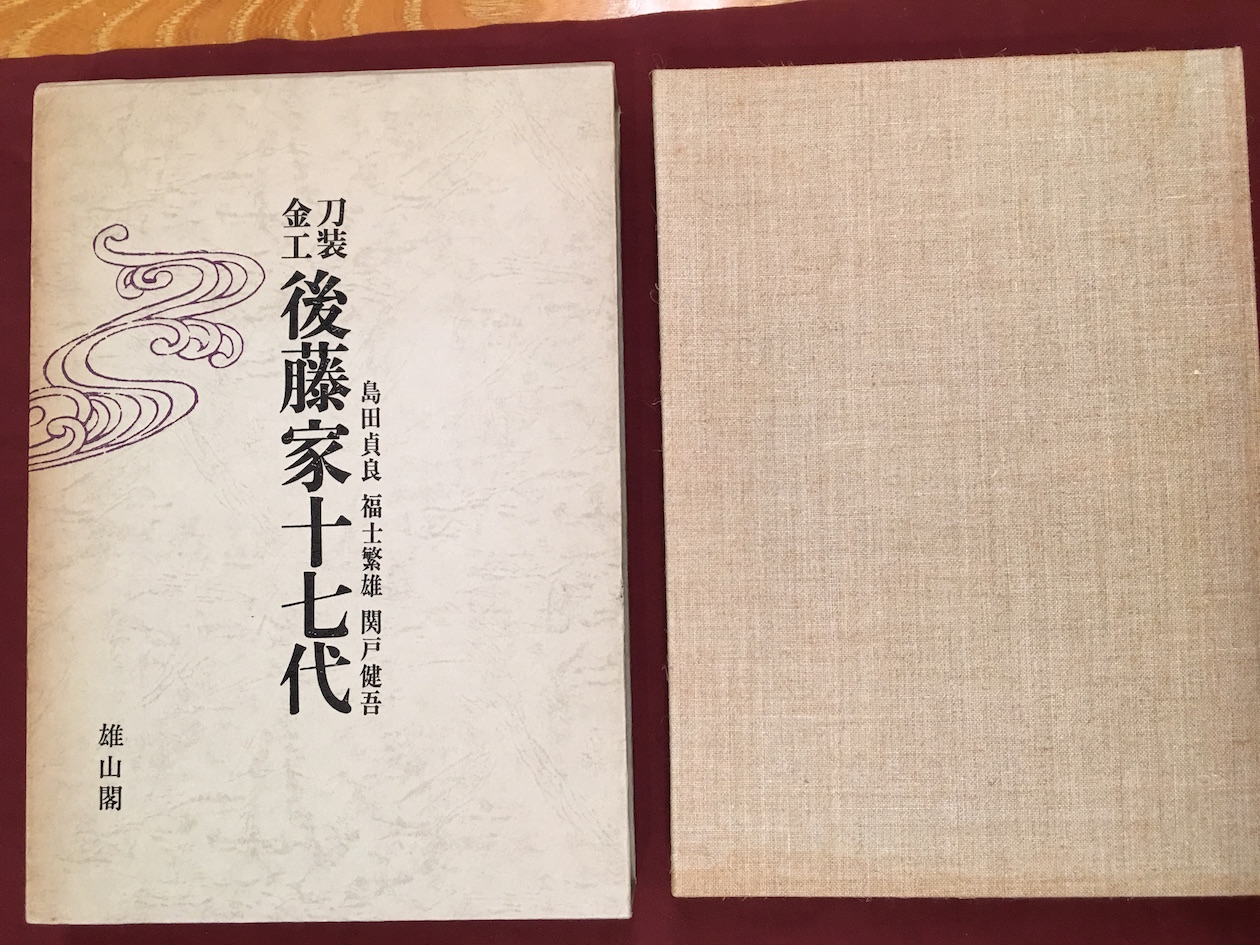 刀装
金工
後藤家十七代
島田貞良 福士繁雄 関戸健吾
雄山閣